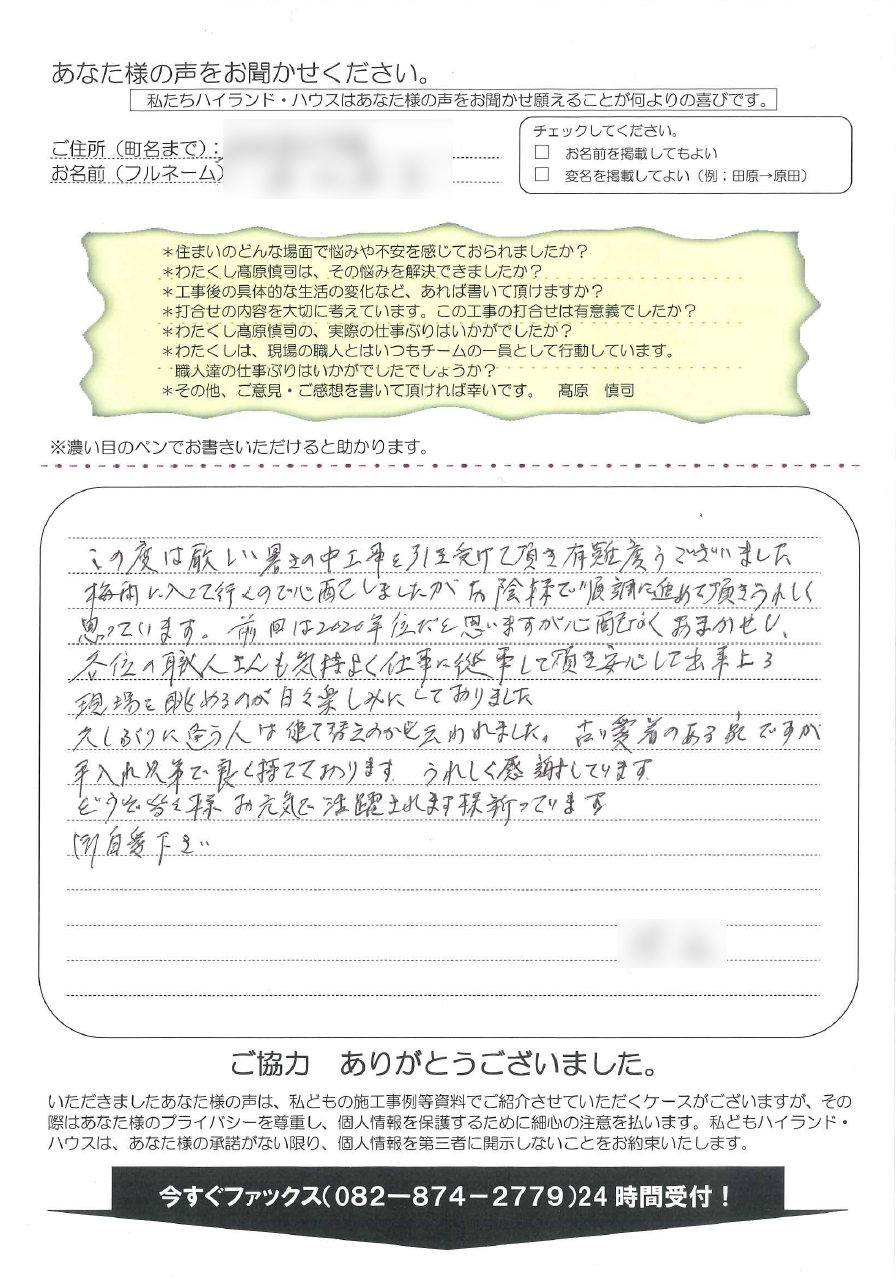 あなた様の声をお聞かせください。
私たちハイランド・ハウスはあなた様の声をお聞かせ願えることが何よりの喜びです。
ご住所（町名まで）：
お名前（フルネーム）
チェックしてください。
□ お名前を掲載してもよい
□ 変名を掲載してよい（例；田原→原田）
＊住まいのどんな場面で悩みや不安を感じておられましたか？
＊わたくし髙原慎司は、その悩みを解決できましたか？
＊工事後の具体的な生活の変化など、あれば書いて頂けますか？
＊打合せの内容を大切に考えています。この工事の打合せは有意義でしたか？
＊わたくし髙原慎司の、実際の仕事ぶりはいかがでしたか？
＊わたくしは、現場の職人とはいつもチームの一員として行動しています。
職人達の仕事ぶりはいかがでしたでしょうか？
＊その他、ご意見・ご感想を書いて頂ければ幸いです。 髙原 慎司
※濃い目のペンでお書きいただけると助かります。
この度は厳しい暑さの中工事を引き受けて頂き有難度うございました
梅雨に入って行くので心配しましたがお陰様で順調に進めて頂きうれしく
思っています。前回は2020年位だと思いますが心配なくおまかせし、
各位の職人さんも気持よく仕事に従事して頂き安心して出来上る
現場を眺めるのが日々楽しみにしておりました
久しぶりに逢う人は建て替えのかと云われました。古い愛着のある家ですが
手入れ次第で良く持てております うれしく感謝しています
どうぞ皆々様お元気で活躍されます様祈っています
御自愛下さい
ご協力 ありがとうございました。
いただきましたあなた様の声は、私どもの施工事例等資料でご紹介させていただくケースがございますが、その
際はあなた様のプライバシーを尊重し、個人情報を保護するために細心の注意を払います。私どもハイランド・
ハウスは、あなた様の承諾がない限り、個人情報を第三者に開示しないことをお約束いたします。
今すぐファックス（082－874－2779）24 時間受付！